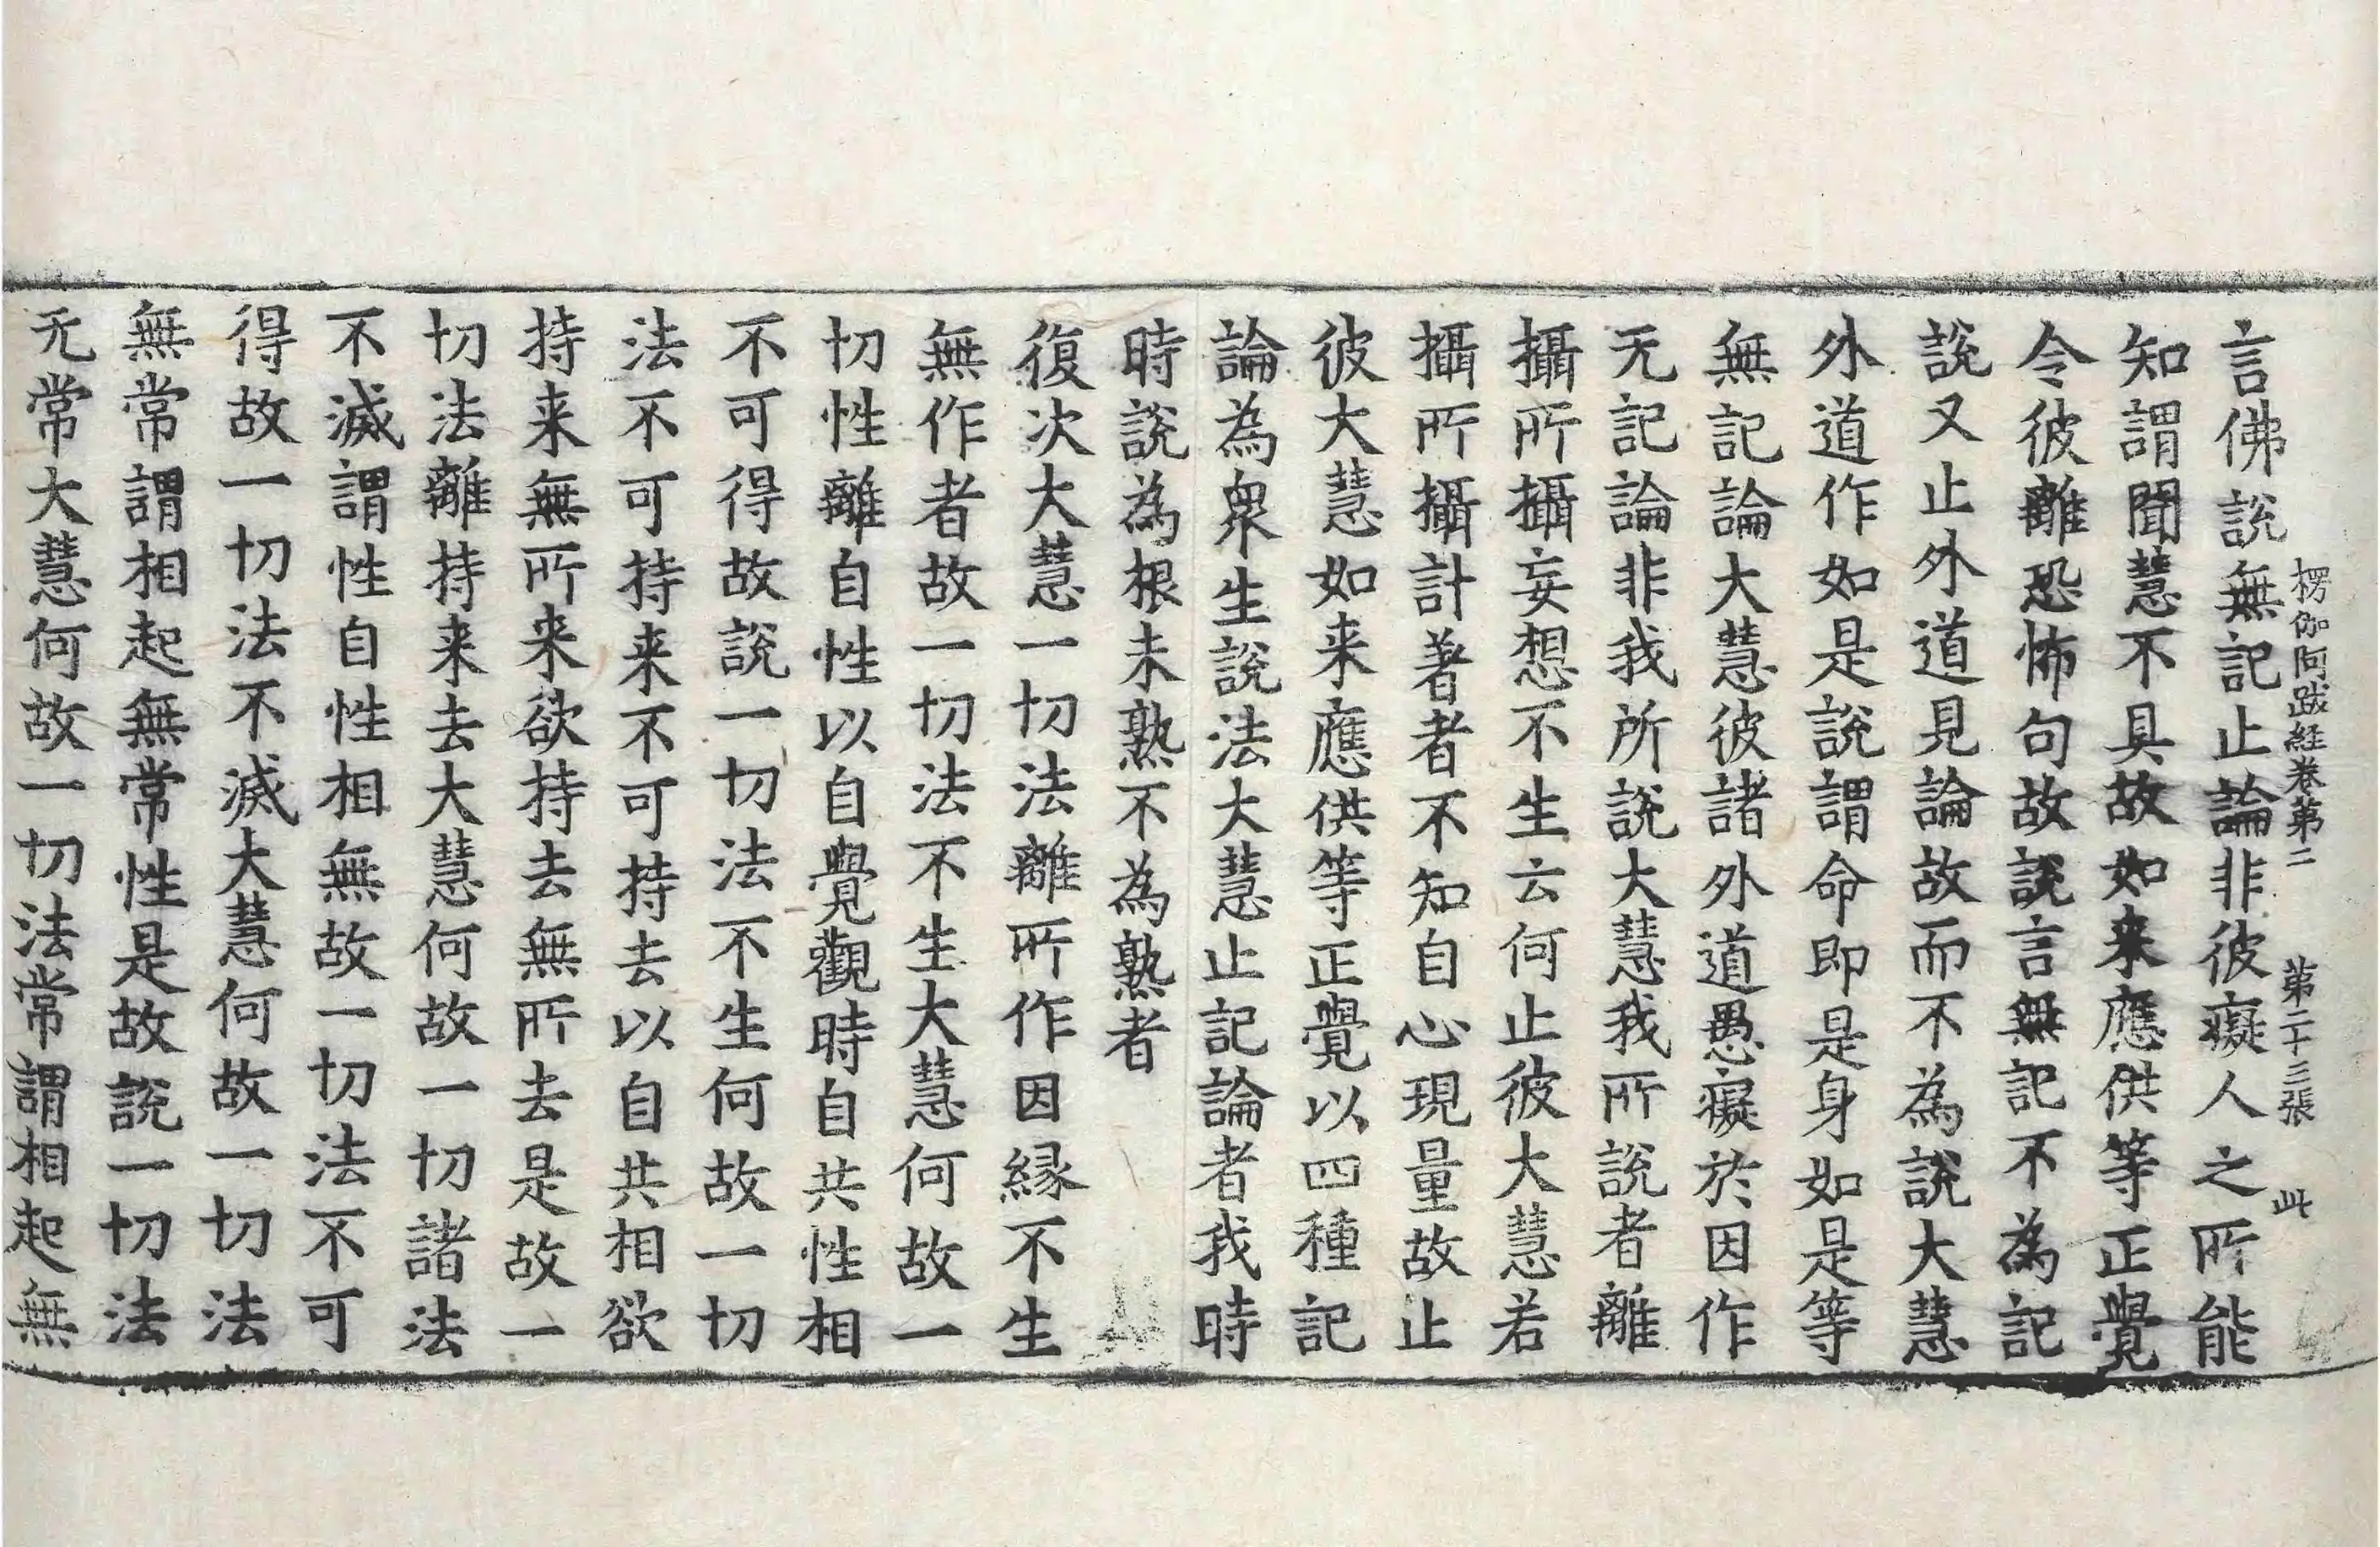 楞伽阿跋経卷第二 第二十三張 此
言佛說無記止論非彼癡人之所能
知謂聞慧不具故如来應供等正覺
令彼離恐怖句故說言無記不為記
說又止外道見論故而不為說大慧
外道作如是說謂命即是身如是等
無記論大慧彼諸外道愚癡於因作
无記論非我所說大慧我所說者離
攝所攝妄想不生云何止彼大慧若
攝所攝計著者不知自心現量故止
彼大慧如来應供等正覺以四種記
論為衆生說法大慧止記論者我時
時說為根未熟不為熟者
復次大慧一切法離所作因縁不生
無作者故一切法不生大慧何故一
切性離自性以自覺觀時自共性相
不可得故說一切法不生何故一切
法不可持来不可持去以自共相欲
持来無所来欲持去無所去是故一
切法離持来去大慧何故一切諸法
不滅謂性自性相無故一切法不可
得故一切法不滅大慧何故一切法
無常謂相起無常性是故說一切法
无常大慧何故一切法常謂相起無